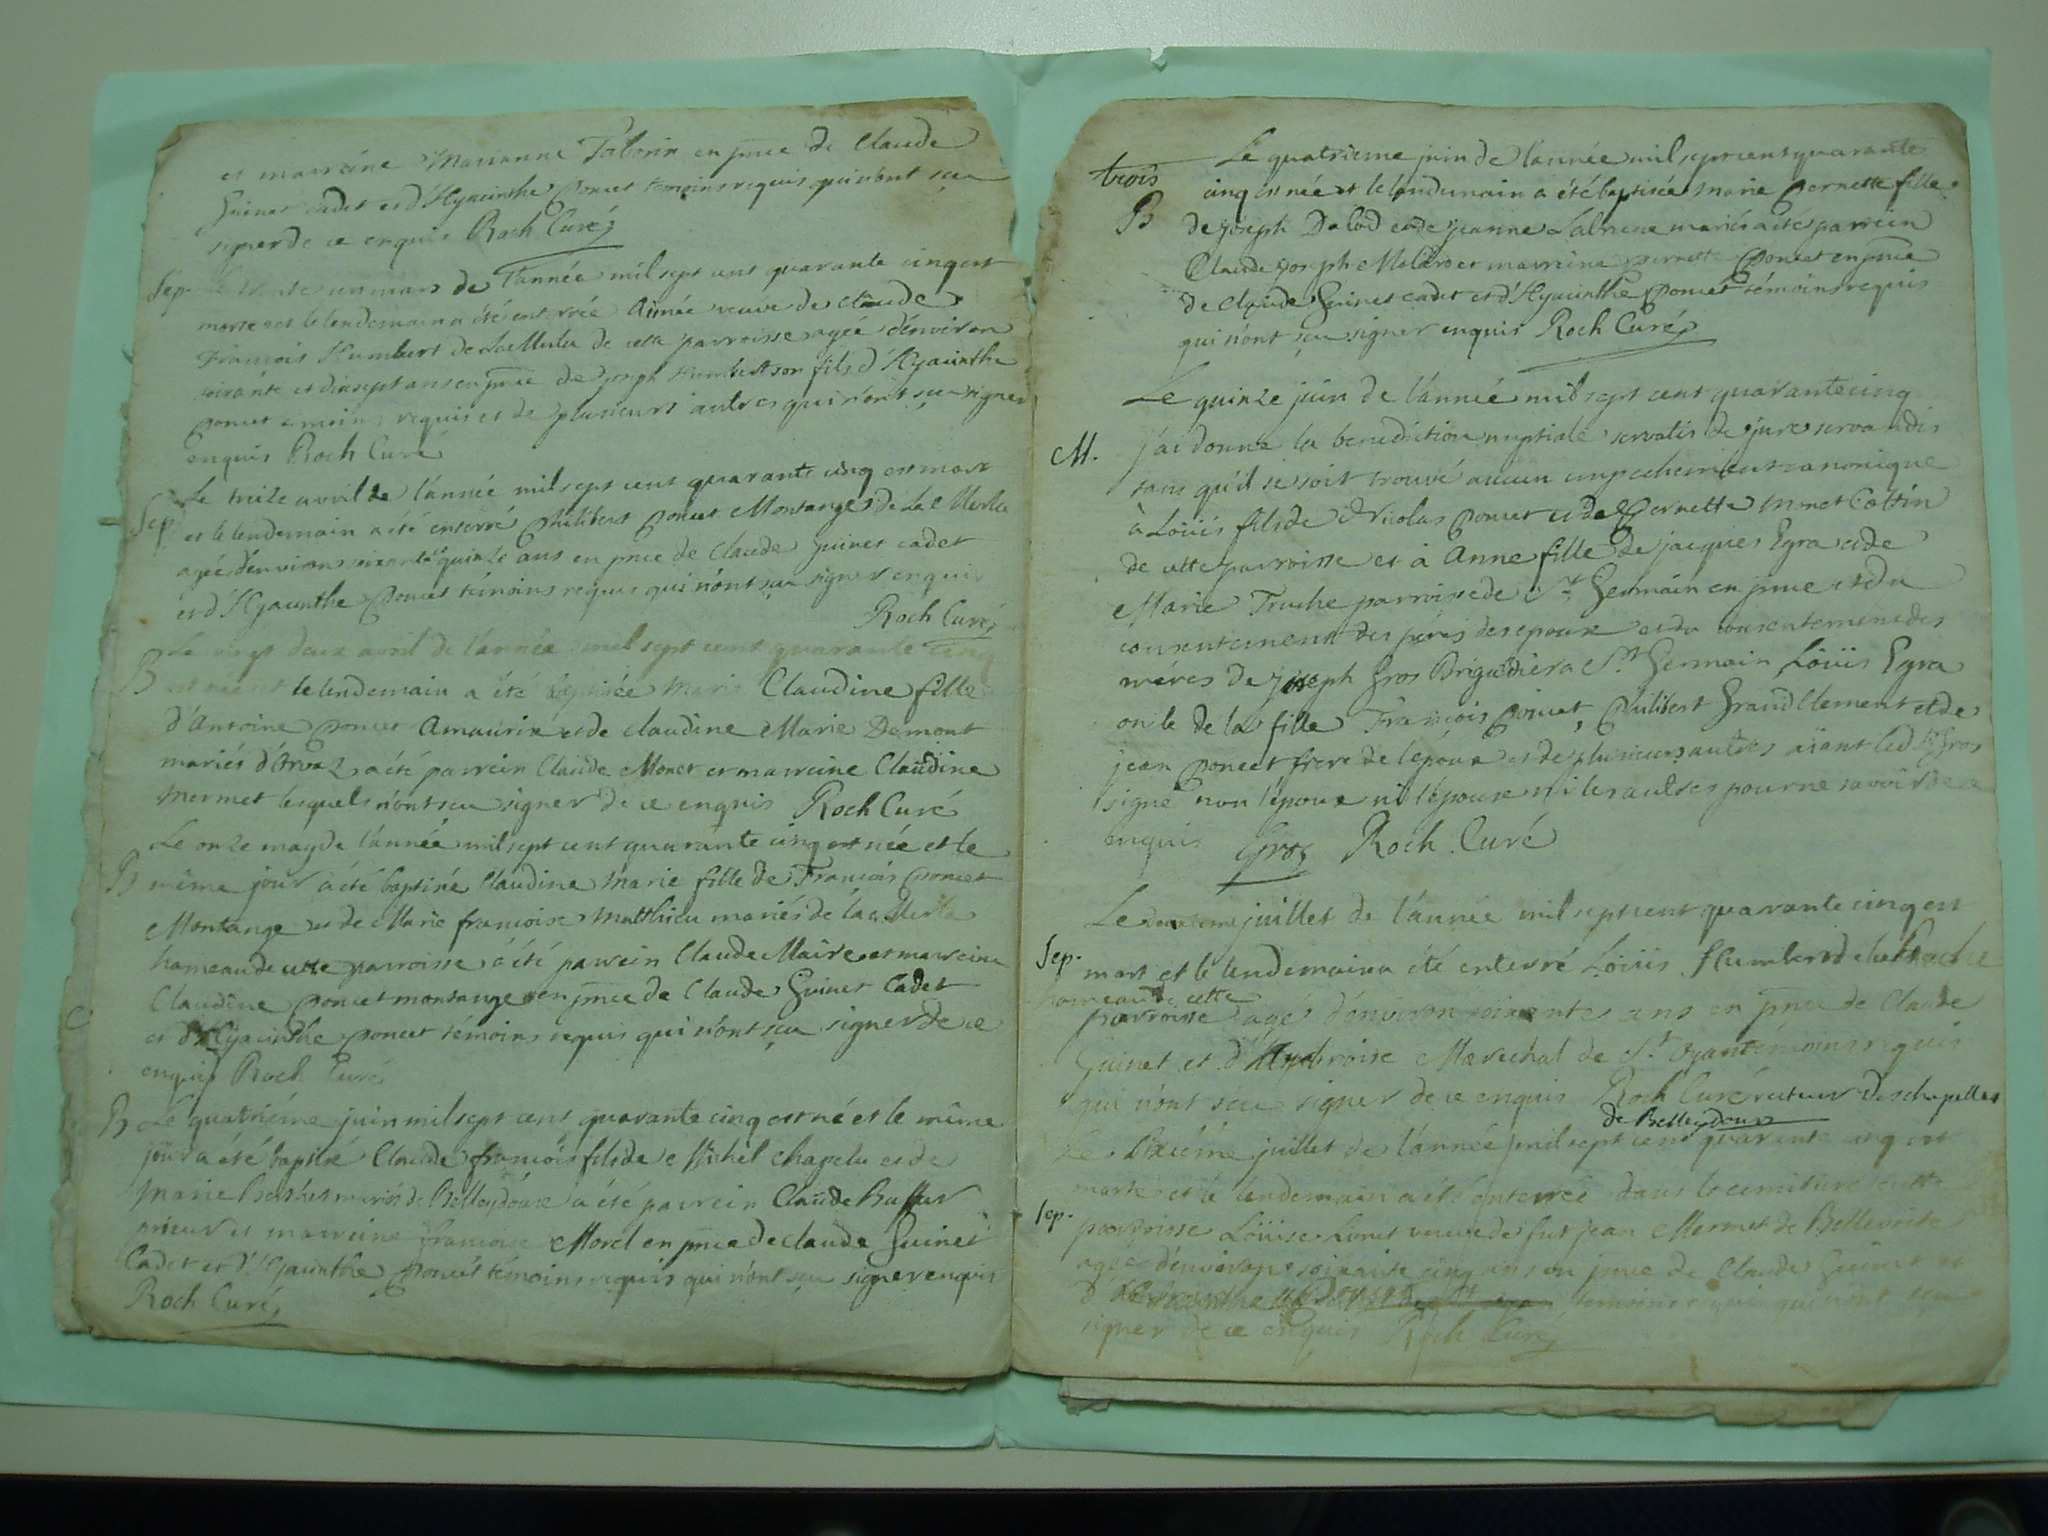 et marreine Marianne Taborin en pnce de Claude
Guinet cadet et d'Hyacinthe Poncet temoins requis qui n'ont sçu
signer de ce enquis Roch Curé
Sep. trente un mars de l'année mil sept cent quarante cinq est
morte et le lendemain a été enterrée Aimée veuve de Claude
François Humbert de La Merla de cette parroisse agée d'environ
soixante et dix sept ans en pnce de Joseph Humbert son fils d'Hyacinthe
Poncet temoins requis et de plusieurs autres qui n'ont sçu signer
enquis Roch Curé
Le treize avril de l'année mil sept cent quarante cinq est mort
Sep. et le lendemain a été enterré Philibert Poncet Montange de La Merla
agée d'environ soixante quinze ans en pnce de Claude Guinet cadet
et d'Hyacinthe Poncet témoins requis qui n'ont sçu signer enquis
Roch Curé
Le vingt deux avril de l'année mil sept cent quarante cinq
B est née et le lendemain a été baptisée Marie Claudine fille
d'Antoine Poncet Amaurix et de Claudine Marie Demont
mariés d'Orvaz a été parrein Claude Monet et marreine Claudine
Mermet lesquels n'ont scu signer de ce enquis Roch Curé
Le onze may de l'année mil sept cent quarante cinq est née et le
B même jour a été baptisée Claudine Marie fille de François Poncet
Montange et de Marie françoise Matthieu mariés de la Merla
hameau de cette parroisse a été parrein Claude Maire et marreine
Claudine Poncet montange en pnce de Claude Guinet Cadet
et d'Hyacinthe Poncet témoins requis qui n'ont sçu signer de ce
enquis Roch Curé
B Le quatriéme juin mil sept cent quarante cinq est né et le même
jour a été baptisé Claude françois fils de Michel Chapelu et de
Marie mariés de Belleydoux a été parrein Claude Buffer
prieur et marreine françoise Morel en pnce de Claude Guinet
Cadet et d'Hyacinthe Poncet témoins requis qui n'ont sçu signer enquis
Roch Curé
trois Le quatrieme juin de l'année mil sept cent quarante
cinq est née et le lendemain a été baptisée Marie Pernette fille
B de Joseph Dalod et de Jeanne mariés a été parrein
Claude Joseph et marreine Pernette Poncet en pnce
de Claude Guinet cadet et d'Hyacinthe Poncet témoins requis
qui n'ont sçu signer enquis Roch Curé
Le quinze juin de l'année mil sept cent quarante cinq
M. j'ai donné la benediction nuptiale servatis de jure servandis
sans qu'il se soit trouvé aucun empechement canonique
à Loüis fils de Nicolas Poncet et de Pernette Monet Cottin
de cette parroisse et à Anne fille de jacques Egra et de
Marie Truche parroisse de St. Germain en pnce et du
consentement des péres des epoux et du consentement des
méres de Joseph Gros Brigadier a St. Germain Loüis Egra
oncle de la fille François Poncet, Philibert Grand Clement et de
jean Poncet frere de l'époux et de plusieurs autres aïant led Sr Gros
signé non l'epoux ni l'épouse ni les aultres pour ne savoir de ce
enquis Gros Roch Curé
Le juillet de l'année mil sept cent quarante cinq est
Sep. mort et le lendemain a été enterré Loüis Humbert
hameau de cette
parroisse agé d'environ soixante ans en pnce de Claude
Guinet et d'Ambroise Marechal de St. Oyan témoins requis
qui n'ont scu signer de ce enquis Roch Curé recteur des chapelles
de Belleydoux
Le juillet de l'année mil sept cent quarante cinq est
morte et le lendemain a été enterrée dans le cemitiere de cette
Sep. parroisse Loüise veuve de fut jean Mermet de Bellevoite
agée d'environ soixante cinq ans en pnce de Claude Guinet et
témoins requis qui n'ont scu
signer de ce enquis Roch Curé